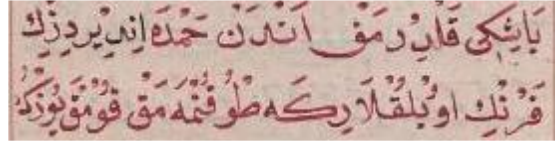 بَاشِكِى قَالْدِرْمَقْ اَنْدَنْ حَمْدَه اِنْدِيرْدِزِكْ
قَرْنِكْ اوُيْلُقْلَارِكَه طُوقُنْمَه مَقْ قُومَقْ يُوزُكْ